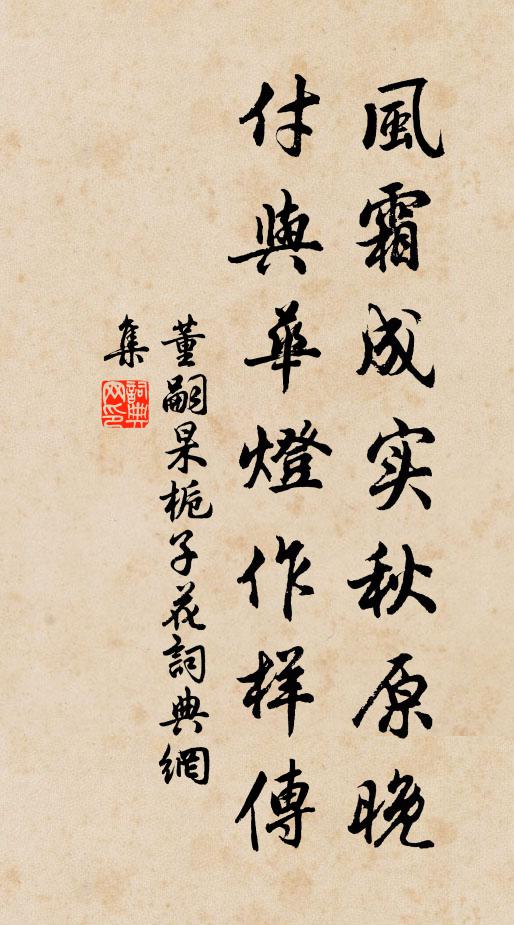 風霜成实秋原晚
付與華燈作样傳
董嗣杲栀子花詞典網
集
詞典
网印